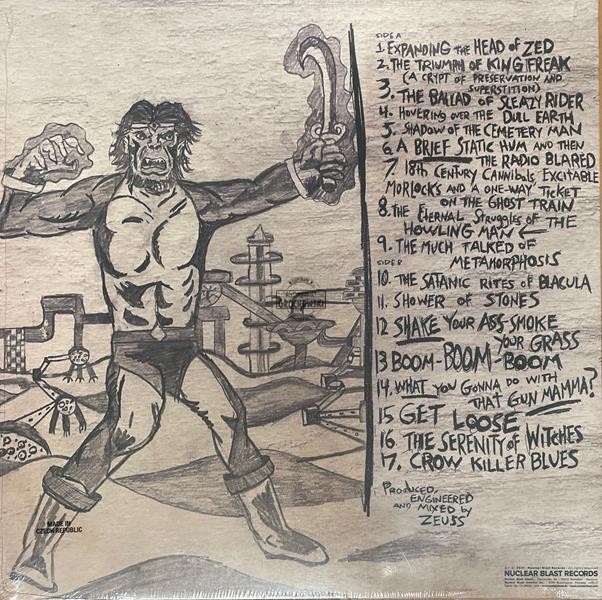 SIDE A
1. EXPANDING THE HEAD OF ZED
2. THE TRIUMPH OF KING FREAK
(A CRYPT OF PRESERVATION AND
SUPERSTITION)
3. THE BALLAD OF SLEAZY RIDER
4. HOVERING OVER THE DULL EARTH
5. SHADOW OF THE CEMETERY MAN
6. A BRIEF STATIC HUM AND THEN
THE RADIO BLARED
7. 18th CENTURY CANNIBALS, EXCITABLE
MORLOCKS AND A ONE-WAY TICKET
ON THE GHOST TRAIN
8. THE ETERNAL STRUGGLES OF THE
HOWLING MAN
9. THE MUCH TALKED OF
METAMORPHOSIS
SIDE B
10. THE SATANIC RITES OF BLACULA
11. SHOWER OF STONES
12 SHAKE YOUR ASS-SMOKE
YOUR GRASS
13 BOOM-BOOM-BOOM
14. WHAT YOU GONNA DO WITH
THAT GUN MAMMA?
15 GET LOOSE
16. THE SERENITY OF WITCHES
17. CROW KILLER BLUES
PRODUCED,
ENGINEERED
AND MIXED by
ZEUSS
MADE IN
CZECH REPUBLIC
NUCLEAR BLAST RECORDS